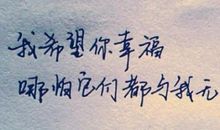 我希望你幸福
哪怕它都与我无